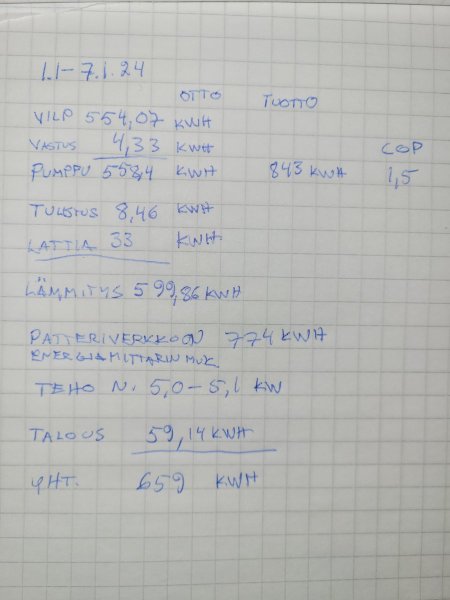 1.1-7.1.24
OTTO TUOTTO
VILP 554,07 KWH
VASTUS 4,33 KWH COP
PUMPPU 558,4 KWH 843 KWH 1,5
TULISTUS 8,46 KWH
LATTIA 33 KWH
LÄMMITYS 599,86 KWH
PATTERIVERKKOON 774 KWH
ENERGIAMITTARIN MUK
TEHO N. 5,0-5,1 KW
TALOUS 59,14 KWH
YHT. 659 KWH